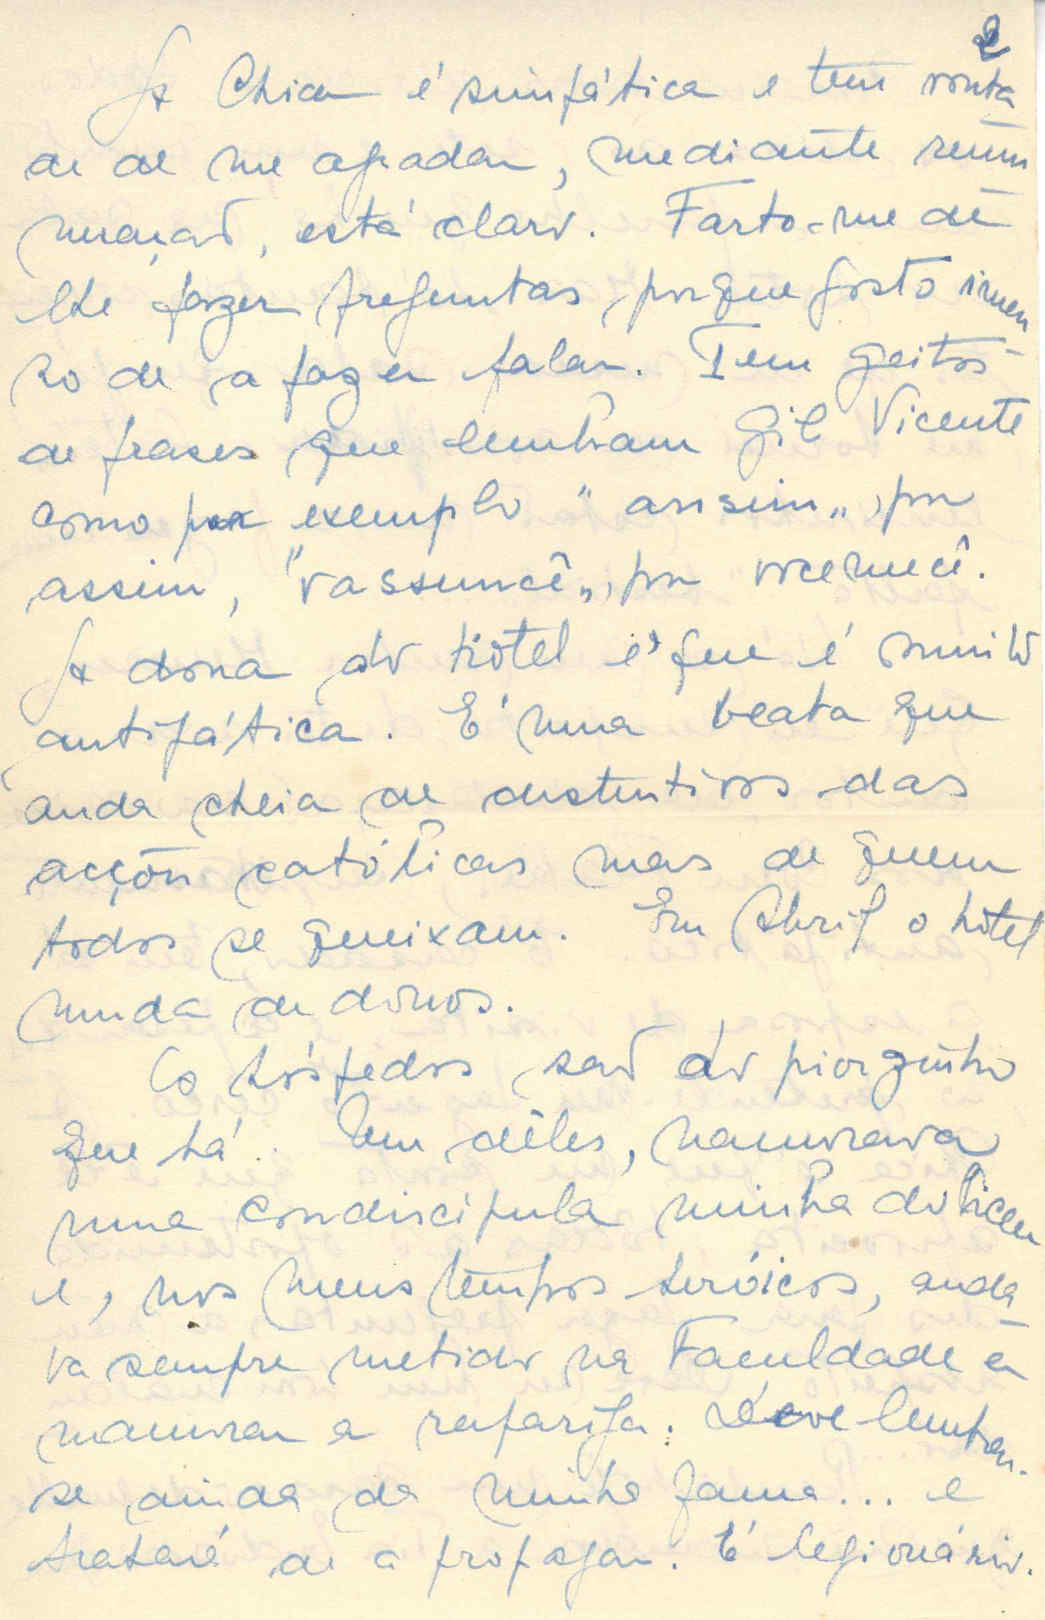 2
A Chica é simpática e tem vonta
de de me agradar, mediante remu
neração, está claro. Farto-me de
lhe fazer preguntas, porque gosto imen
so de a fazer falar. Tem geitos
de frases que lembram Gil Vicente
como por exemplo "ansim", por
assim, "vassuncê", por vocemecê.
A dona do hotel é que é muito
antipática. É uma beata que
anda cheia de destintivos das
acções católicas mas de quem
todos se queixam. Em Abril o hotel
muda de donos.
Os hóspedes são do piorzinho
que há. Um dêles, namorava
uma condiscípula minha do liceu
e, nos meus tempos heróicos, anda
va sempre metido na Faculdade a
namorar a rapariga. Deve lembrar-
se ainda da minha fama... e
tratará de a propagar. É legionário.